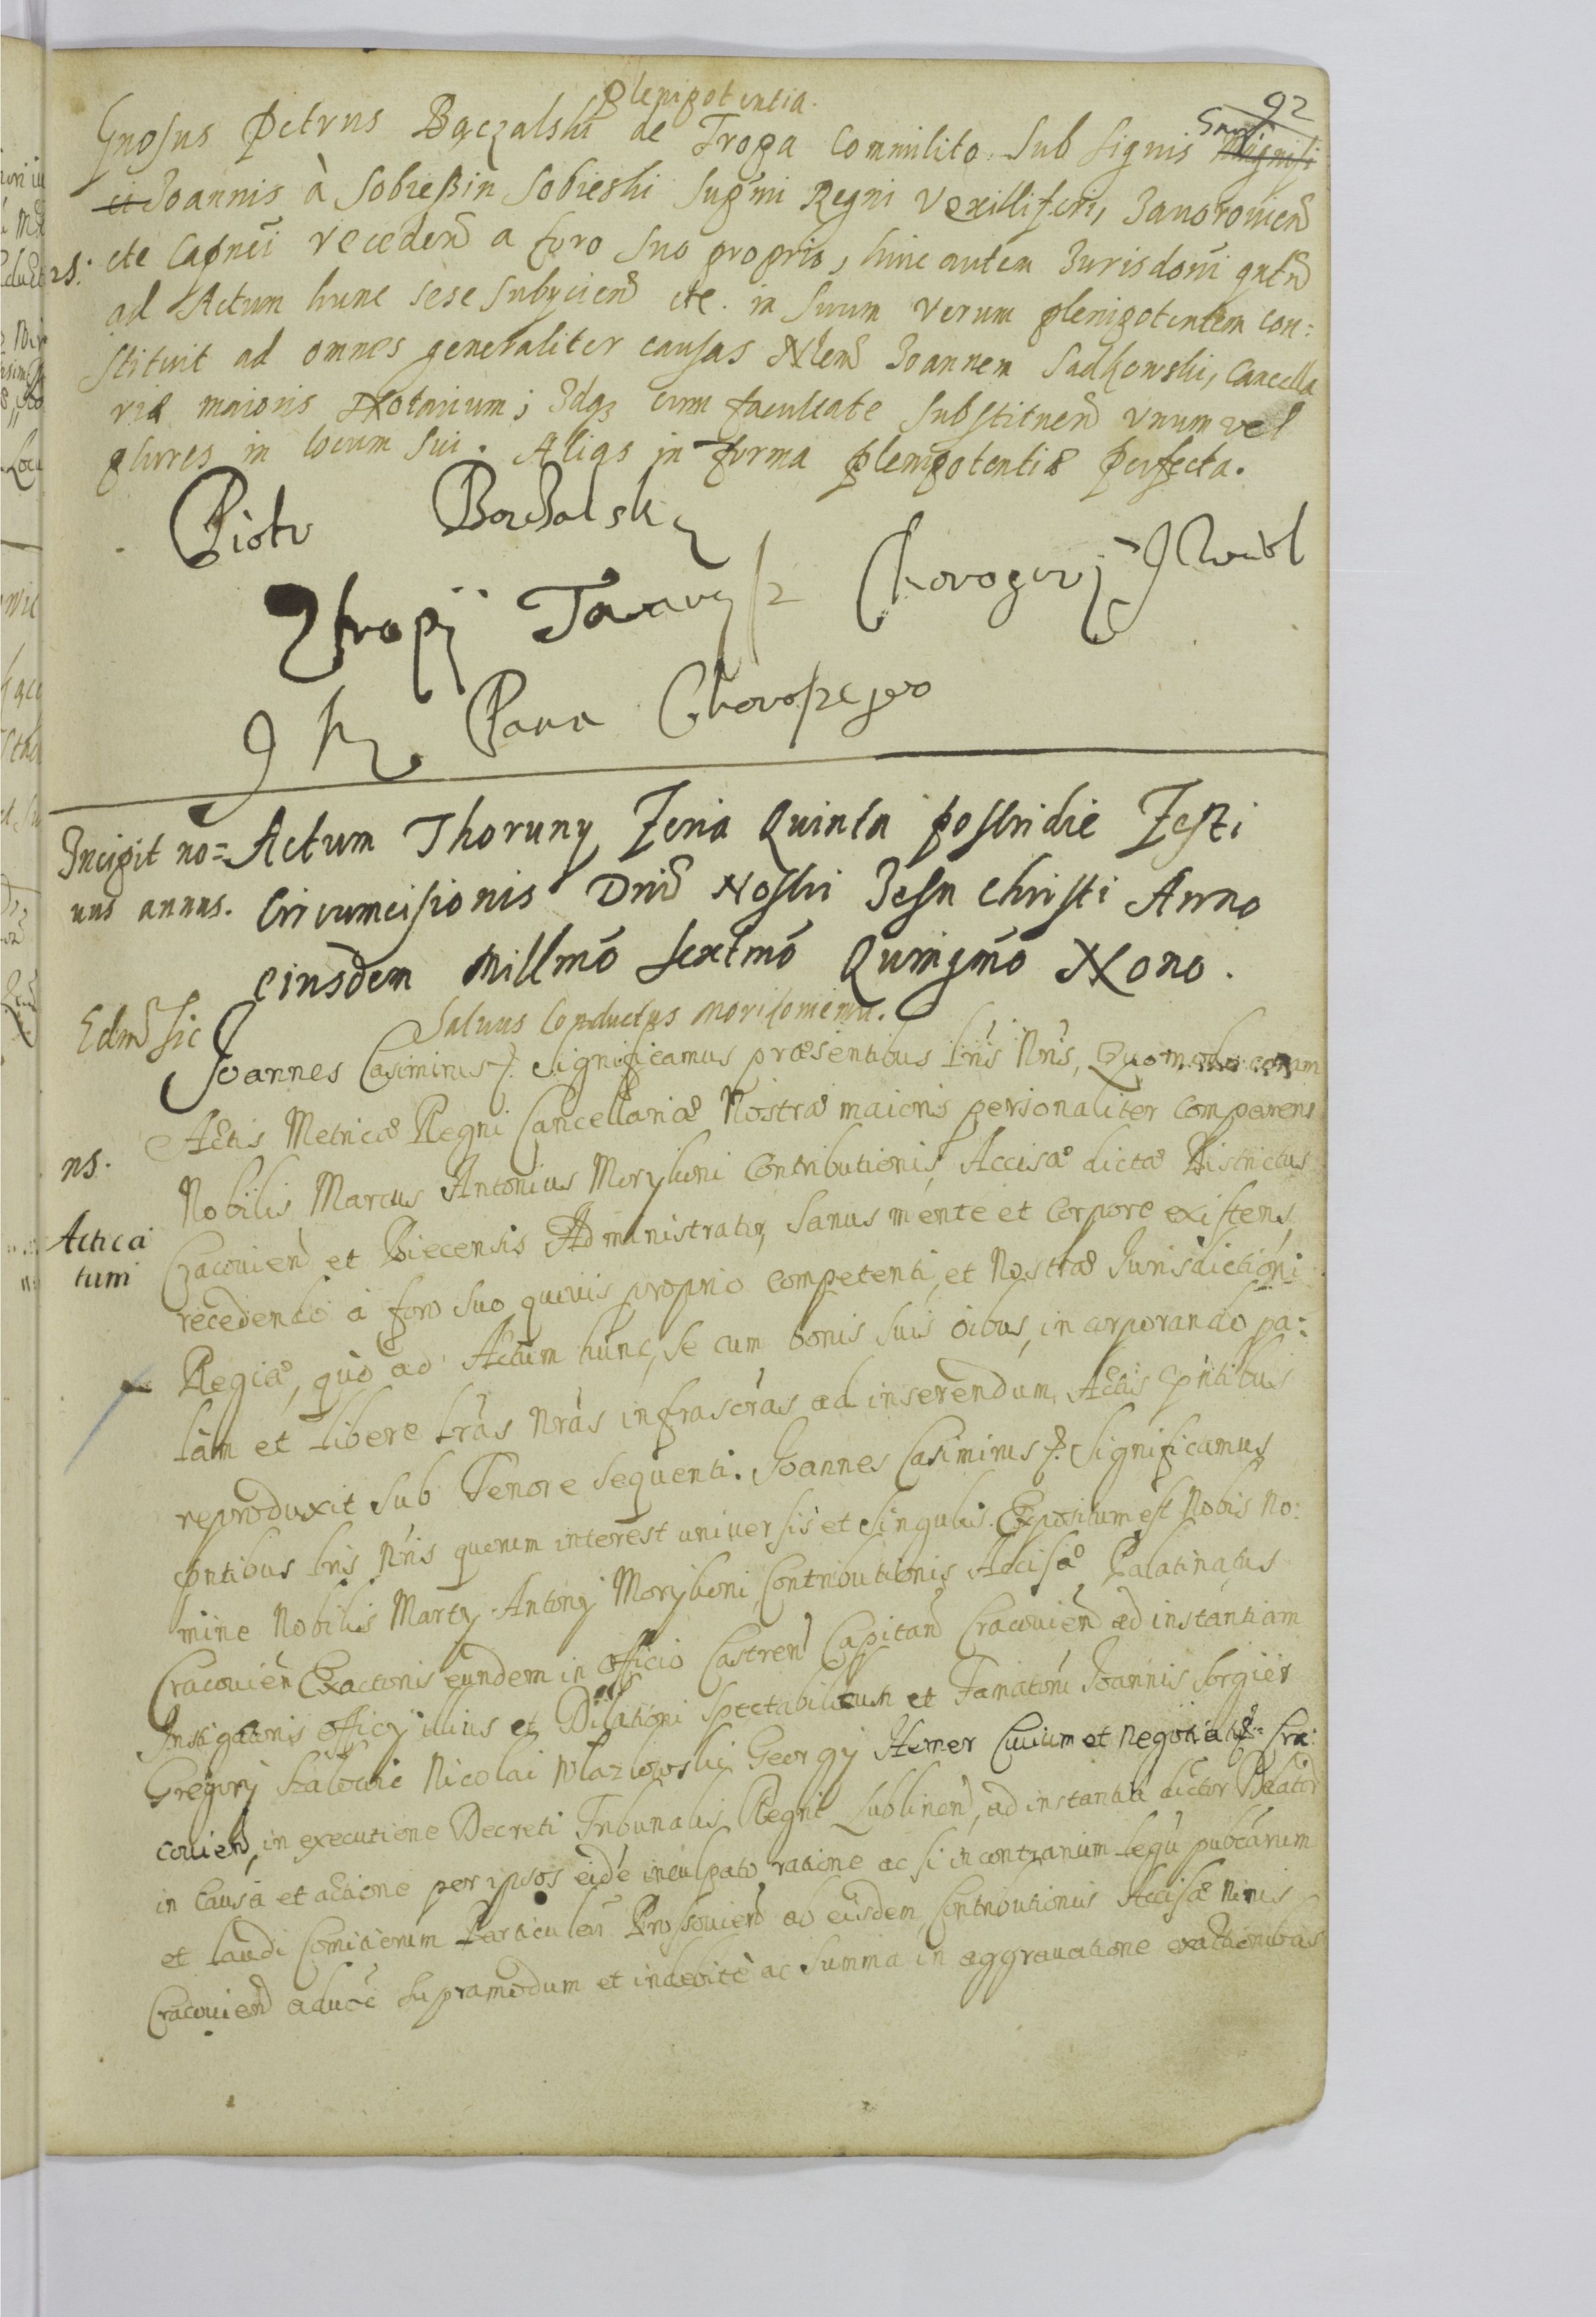 92
plenipotentia.
Gnosus Petrus Bączalski de Tropa Commilito sub signis Gnosi Magnifi
ci Joannis à Sobießin Sobieski Supmi Regni Vexilliferi, Javoroviens
ete Capnei recedens a foro suo proprio, huic autem Jurisdoni qntn
ad Actum hunc sese subyciens etc. in suum verum plenipotentem con:
stituit ad omnes generaliter causas Nlem Joannem Sadkowski, Cancella
riæ maioris Notarium; Idq3 cum facultate substituen unum vel
plures in locum sui. Alias in forma plenipotentiæ perfecta.
Piotr
Ztropy Towarysz
Pana Chorozego
Incipit no=
uus annus.
Actum Thoruny Feria Quinta postridie Festi
Circumcisionis Dni Nostri Jesu Christi Anno
eiusdem Millmo sextmo Quingmo Nono.
Salvus Conductus Morikoniemu.
Joannes Casimirus &. Significamus præsentibus Lris Nris, Quomodo coram
Actis Metricæ Regni Cancellariæ Nostræ maioris personaliter comparens
ns.
Nobilis Marcus Antonius Morykoni Contributionis Accisæ dictæ Districtus
Actica
tum
Cracovien et Biecensis Administrator, sanus mente et corpore existens,
recedendo à foro suo quovis proprio competenti, et Nostræ Jurisdictioni
Regiæ, quo ad Actum hunc, se cum bonis suis oibus, incorporando pa:
lam et libere Lras Nras infrascras ad inserendum, Actis pntibus
reproduxit sub Tenore sequenti. Joannes Casimirus &. Significamus
pntibus Lris Nris quorum interest universis et singulis. Expositum est Nobis No:
mine Nobilis Marty Antony Morykoni, Contributionis Accisæ Palatinatus
Cracovien Exactoris eundem in Officio Castren Capitan Cracovien ad instantiam
Instigatoris officy illius et Dilationi Spectabilium et Famatoru Joannis Sorgier
Gregory Nicolai Georgy Hemer Civium et Negotiator Cra:
covien, in executione Decreti Tribunalis Regni Lublinen, ad instantia dictor Delator
in causa et actione per ipsos eide inculpato, ratione ac si in contrarium legu pubcarum
et laudi Comitiorum Particulari Prossovien ab eisdem Contributionis Accisæ
Cracovien adhoc supramodum et indebite ac summa in aggravatione exactionibus